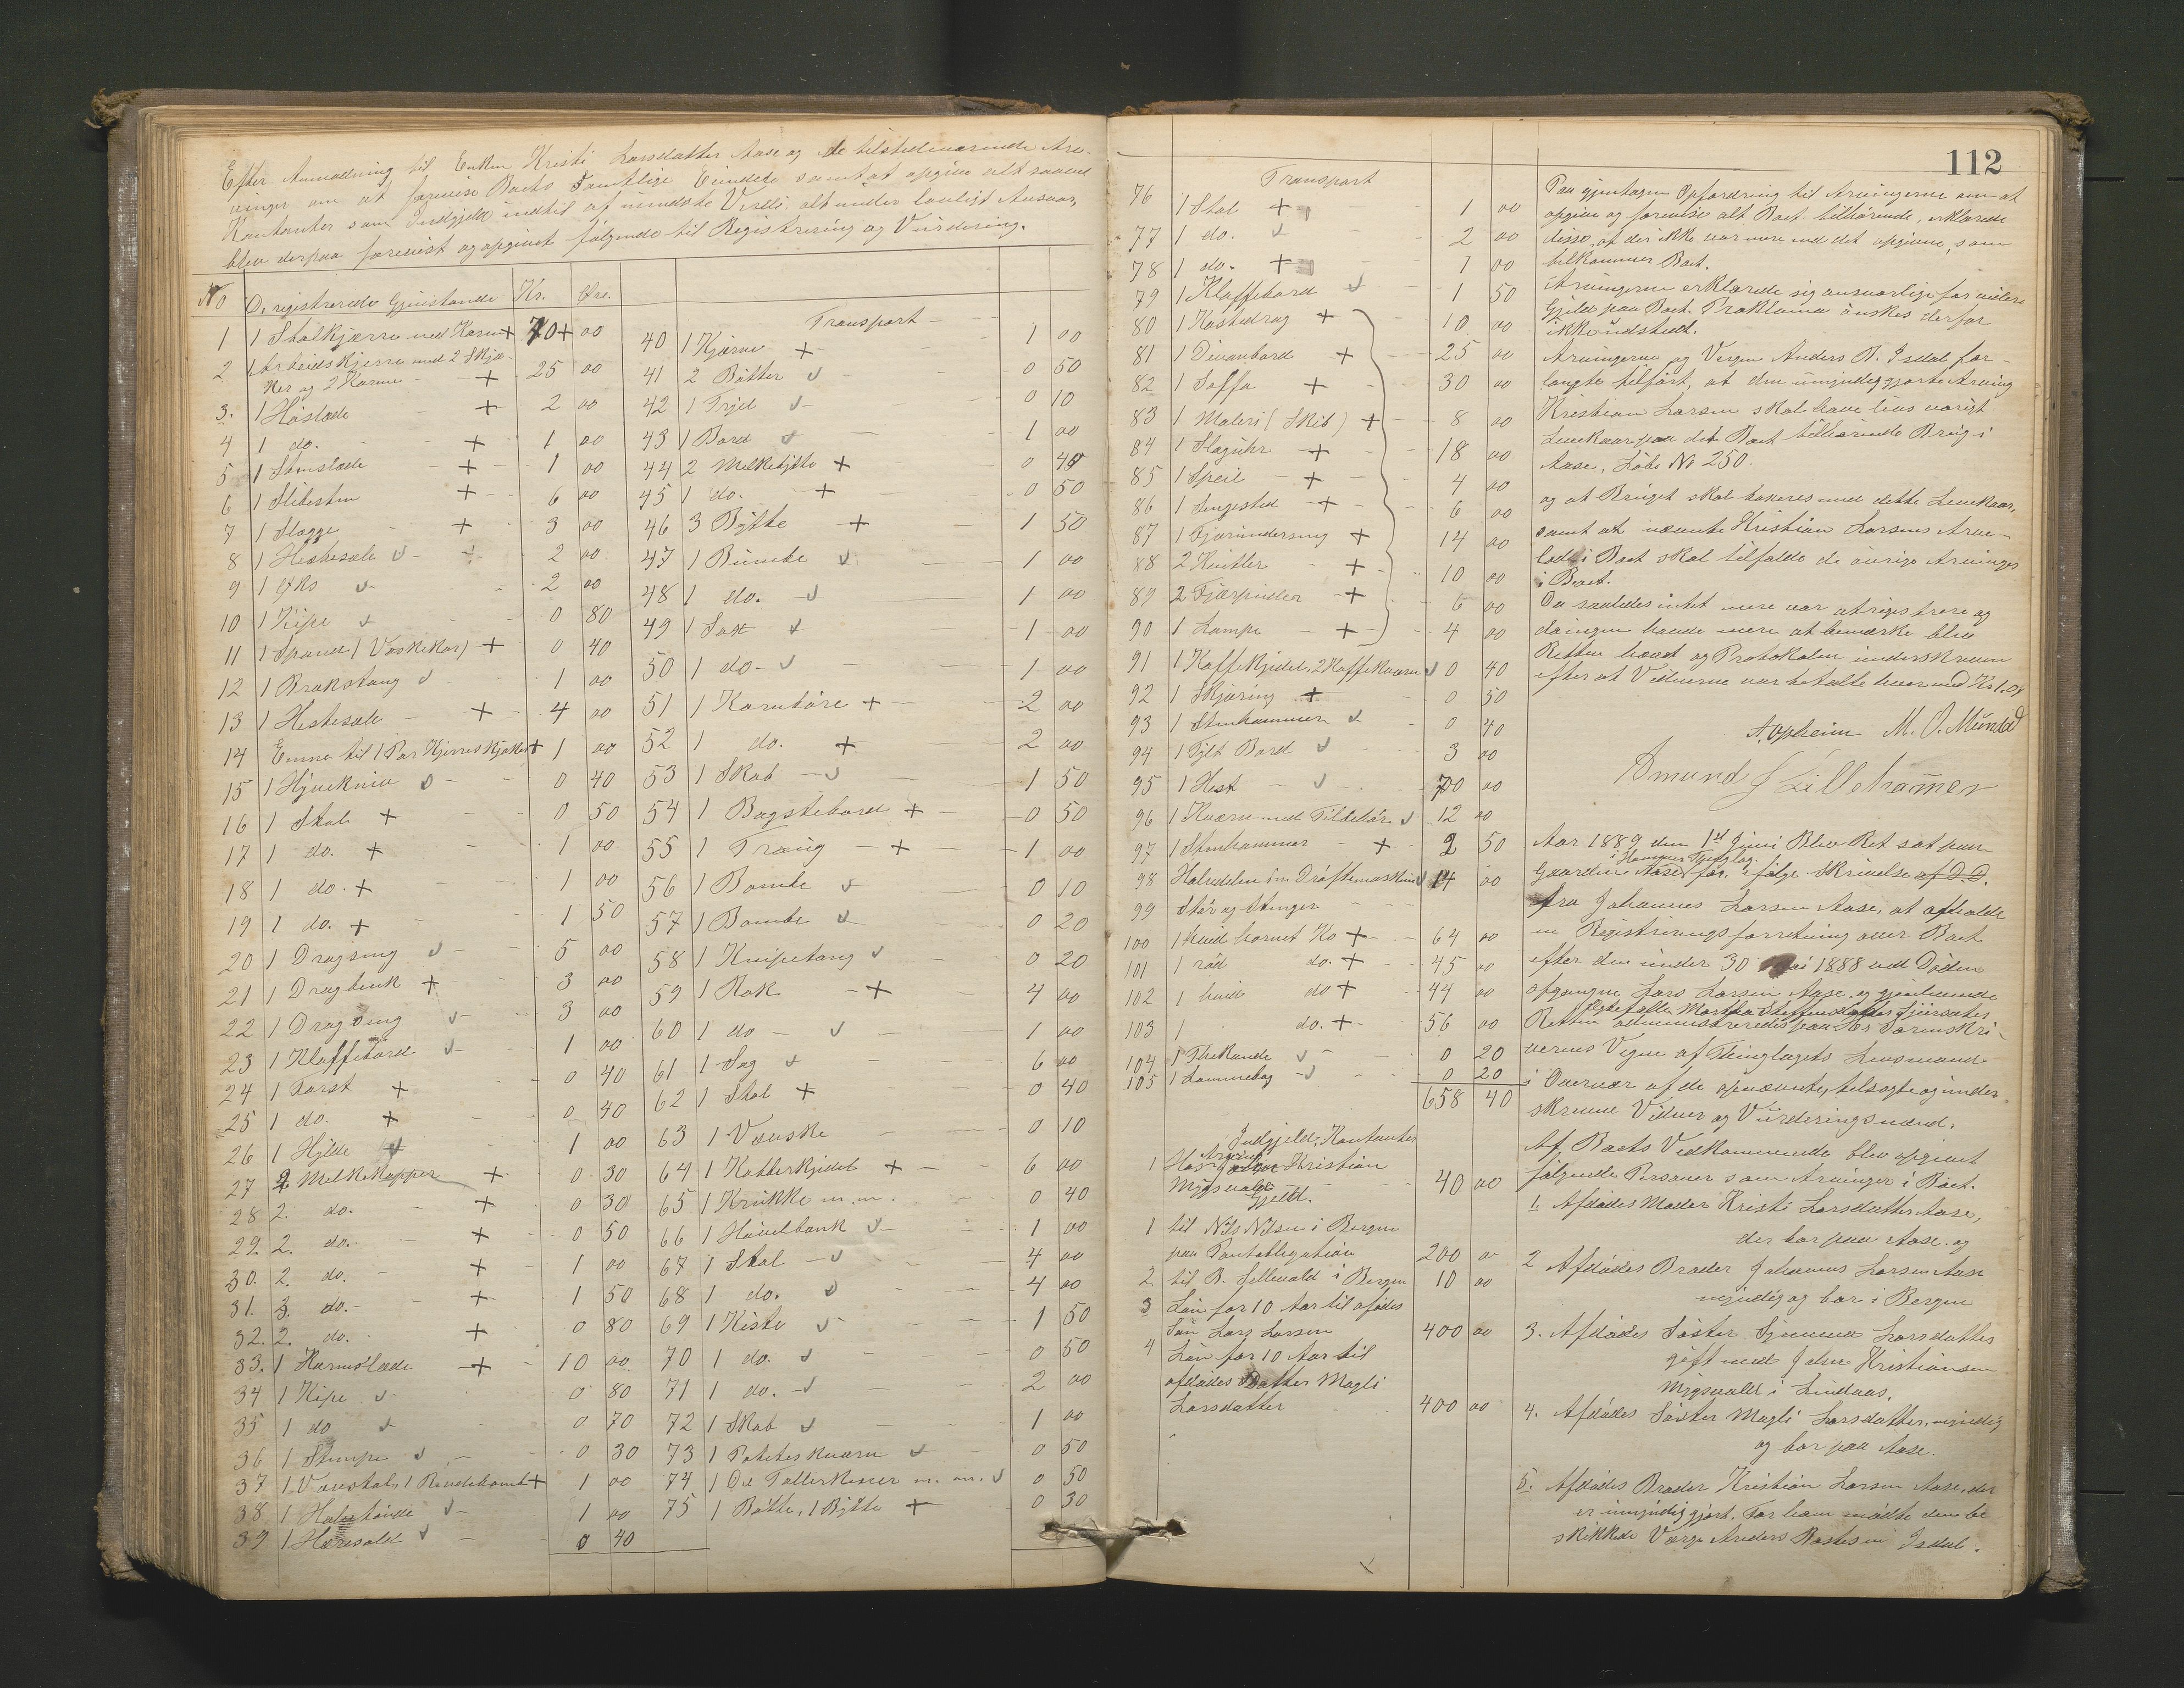 Efter Anmodning til Enken Kristi Larsdatter Aase og de tilstedeværende Arv-
inger om at forevise Boets samtlige Eiendele samt at opgive alt saavel
Kontanter som Indgjeld indtil af mindste Verdi, alt under lovligt Ansvar,
blev derpaa forevist og opgivet følgende til Registrering og Vurdering.
No De registrerede Gjenstande Kr. Øre.
1 1 Stolkjærre med Karm + 70 + 00
2 1 Arbeidskjerre med 2 Skjæ-
ker og 2 Karme + 25 00
3. 1 Høslæde + 2 00
4 1 do. + 1 00
5 1 Stenslæde + 1 00
6 1 Slibesten + 6 00
7 1 Slægge + 3 00
8 1 Hestesæle 2 00
9 1 Øks 2 00
10 1 Kipe 0 80
11 1 Spand (Vaskekar) + 0 40
12 1 Brækstang 1 00
13 1 Hestesæle + 4 00
14 Emne til 1 Par Kjerreskjæker + 1 00
15 1 Hjuekniv 0 40
16 1 Stol + 0 50
17 1 do. + 1 00
18 1 do. + 1 00
19 1 do. + 1 50
20 1 Dragseng 5 00
21 1 Dragbenk + 3 00
22 1 Dragseng 3 00
23 1 Klaffebord 1 00
24 1 Torst + 0 40
25 1 do. + 0 40
26 1 Hylde 1 00
27 2 Melkekopper + 0 30
28 2. do. + 0 30
29. 2. do. + 0 50
30. 2. do. + 1 00
31. 3. do. + 1 50
32. 2. do. + 0 80
33. 1 Karmslæde + 10 00
34 1 Kipe 0 80
35 1 do 0 70
36 1 Stampe 0 30
37 1 Vævstol, 1 Rendebomt + 1 00
38. 1 Halvtønde 1 00
39 1 Hæresold 0 40
Transport
40 1 Kjærne + 1 00
41 2 Bøtter 0 50
42 1 Trijel 0 10
43 1 Bord 1 00
44 2 Melkebytte + 0 40
45 1 do. + 0 50
46 3 Bytte + 1 50
47 1 Bumbe 1 00
48 1 do. 1 00
49 1 Sax 1 00
50 1 do 1 00
51 1 Korntøre + 2 00
52 1 do. + 2 00
53 1 Skab 1 50
54 1 Bagstebord + 0 50
55 1 Traug + 1 00
56 1 Bombe 0 10
57 1 Bombe 0 20
58 1 Knipetang 0 20
59 1 Rok + 4 00
60 1 do 1 00
61 1 Sag 6 00
62 1 Stol + 0 40
63 1 Væuske 0 10
64 1 Kobberkjedel + 6 00
65 1 Krukke m.m. 0 40
66 1 Høvelbenk 1 00
67 1 Stol 4 00
68 1 do. 4 00
69 1 Kiste 1 50
70 1 do. 0 50
71 1 do. 2 00
72 1 Skab 1 00
73 1 Poteteskværn 0 50
74 1 Del Tallerkener m. m. 0 50
75 1 Bøtte, 1 Bytte + 0 30
112
Transport
76 1 Stol + 1 00
77 1 do. 2 00
78 1 do. + 1 00
79 1 Klaffebord 1 50
80 1 Kostedrag + 10 00
81 1 Divanbord + 25 00
82 1 Soffa + 30 00
83 1 Maleri (Skib) + 8 00
84 1 Slaguhr + 18 00
85 1 Speil + 4 00
86 1 Sengested + 6 00
87 1 Fjærunderseng + 14 00
88 2 Kvitler + 10 00
89 2 Fjærpuder + 6 00
90 1 Lampe + 4 00
91 1 Kaffekjedel, 2 Kaffekværn 0 40
92 1 Skjæring + 0 50
93 1 Stenhammer 0 40
94 1 Fjelt Bord 3 00
95 1 Hest 70 00
96 1 Kværn med Tilbehør 12 00
97 1 Stenhammer + 2 50
98 Halvdelen i en Drøftemaskine 14 00
99 Stør og Stenger
100 1 hvid hornet Ko + 64 00
101 1 rød do. + 45 00
102 1 hvid do + 44 00
103 1 do. + 56 00
104 1 Thekande 0 20
105 1 Lommebog 0 20
658 40
Indgjeld, Kontanter
1 Hos Arving Kristian
Mygsvold 40 00
Gjeld.
1 til Nils Nilsen i Bergen
paa Pantobligation 200 00
2 til B. Sellevold i Bergen 10 00
3 Løn for 10 Aar til afdødes
Søn Lars Larsen 400 00
4 Løn for 10 Aar til
afdødes Datter Magli
Larsdatter 400 00
Paa gjentagen Opfordring til Arvingerne om at
opgive og forevise alt Boet tilhørende, erklærede
disse, at der ikke var mere end det opgivne, som
tilkommer Boet.
Arvingerne erklærede sig ansvarlige for videre
Gjeld paa Boet. Proklama ønskes derfor
ikke udstedt.
Arvingerne og Vergen Anders B. Isdal for-
langte tilført, at den umyndiggjorte Arving
Kristian Larsen skal have livsvarigt
Levekaar paa det Boet tilhørende Brug i
Aase, Løbe No 250.
og at Bruget skal taxeres med dette Levekaar,
samt at nævnte Kristian Larsens Arve-
lod i Boet skal tilfalde de øvrige Arvinger
i Boet.
Da saaledes intet mere var at registrere og
da ingen havde mere at bemærke blev
Retten hævet og Protokolen underskreven
efter at Vidnerne var betalte hver med Kr 1.08
A. Opheim M. O. Mundal
Amund J Lillehammer
Aar 1889 den 1st Juni Blev Ret sat paa
i Hammer Thinglag
Gaarden Aase for ifølge Skrivelse af D.D.
fra Johannes Larsen Aase, at afholde
en Registreringsforretning over Boet
efter den under 30 Mai 1888 ved Døden
afgangne Lars Larsen Aase, og gjenlevende
Ægtefælle Martha Steffensdatter
Retten administreredes paa Hr Sorenskri-
verens Vegne af Thinglagets Lensmand
i Overvær af de opnævnte, tilsagte og under-
skrevne Vidner og Vurderingsmænd.
Af Boets Vedkommende blev opgivet
følgende Personer som Arvinger i Boet.
1. Afdødes Moder Kristi Larsdatter Aase,
der bor paa Aase. og
2 Afdødes Broder Johannes Larsen Aase
myndig og bor i Bergen
3. Afdødes Søster Larsdatter
gift med Johan Kristiansen
Mygsvold i Lindaas.
4. Afdødes Søster Magli Larsdatter, myndig
og bor paa Aase.
5. Afdødes Broder Kristian Larsen Aase, der
er umyndiggjort. For ham mødte den be
skikkede Værge Anders Isdal.